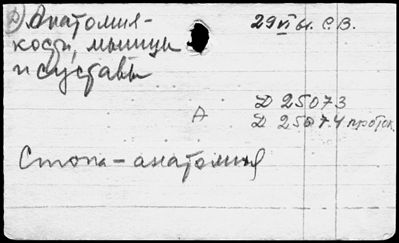 Анатомия-
кости, мышцы
и суставы
29 VI ы. С.В.
А
Д 25073
Д 25074 проток.
Стопа - анатомия